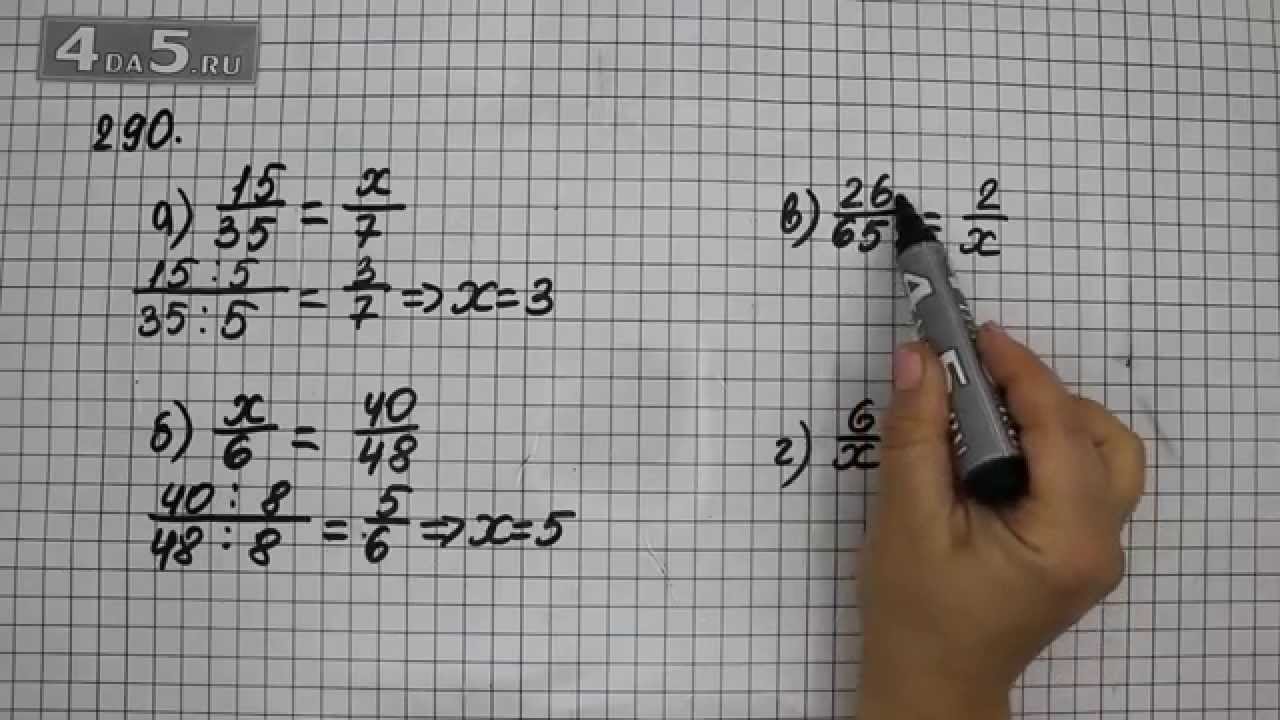 4DA5.RU
290.
а) 15/35 = x/7
15:5/35:5 = 3/7 => x=3
б) x/6 = 40/48
40:8/48:8 = 5/6 => x=5
в) 26/65 = 2/x
г) 6/x